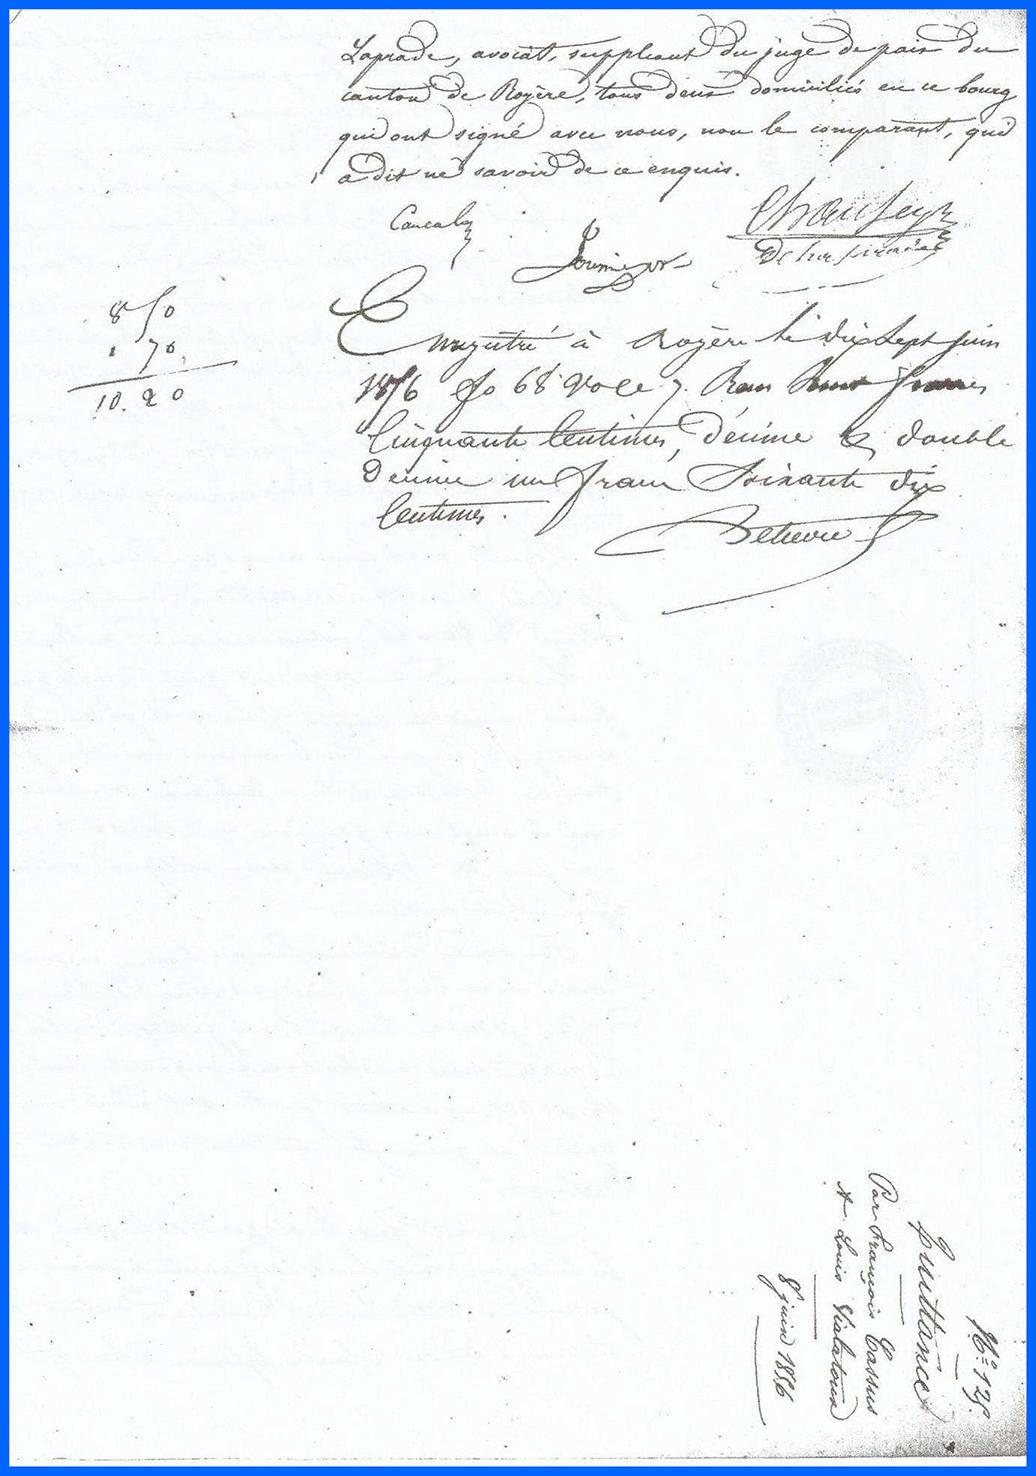 Laprade, avocat, suppléant du juge de paix du
canton de Royère, tous deux domiciliés en ce bourg
qui ont signé avec nous, non le comparant, qui
a dit ne savoir de ce enquis.
8 50
1 70
10. 20
Enregistré à Royère le dix sept juin
1856 fo 68 Vo Ce 7. Reçu huit francs
Cinquante Centimes, décime & double
décime un franc soixante dix
Centimes.
No 125.
Quittance
Par François Cassus
A Louis Vialatoux
8 juin 1856